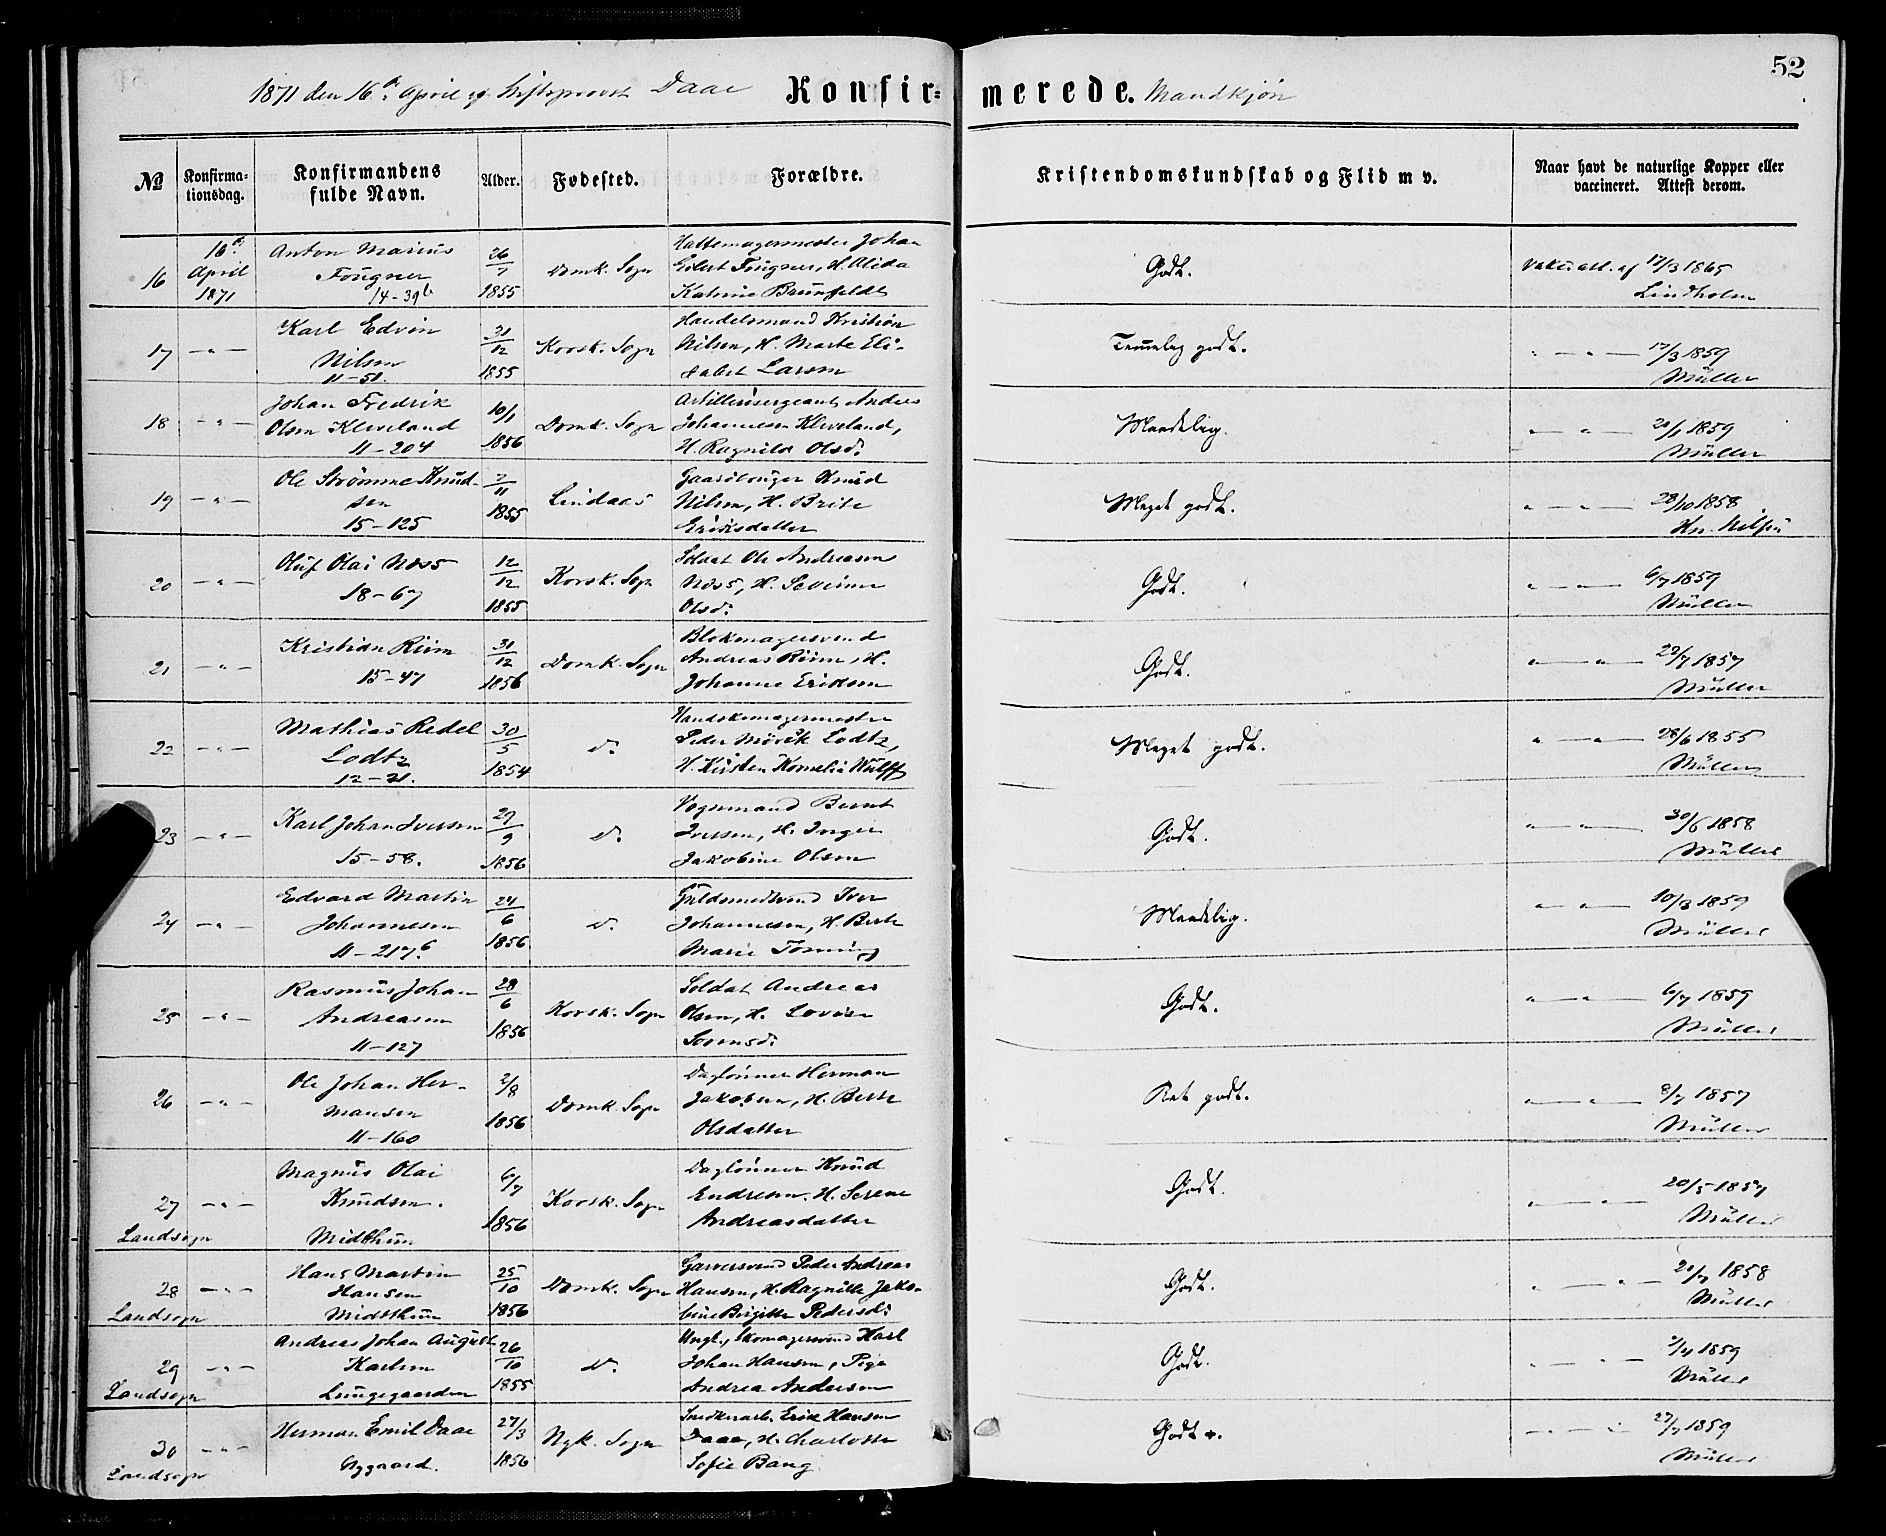 52
1871 den 16de April af Stiftsprovst Daae Konfirmerede. Mandkjøn
No
Konfirmationsdag.
Konfirmandens fulde Navn.
Alder.
Fødested.
Forældre.
Kristendomskundskab og Flid m v.
Naar havt de naturlige Kopper eller vaccineret. Attest derom.
16 16de April 1871 Anton Marius Fougner 14-39b 26/7 1855 Domk. Sogn Hattemagermester Johan Eilert Fougner, H. Alida Katrine Brunfeldt Godt. Vakc. att. af 17/3 1865 Lindholm
17 -"- Karl Edvin Nilsen 11-51. 31/12 1855 Korsk. Sogn Handelsmand Kristian Nilsen, H. Marte Elisabet Larsen Temmelig godt. " - " - 17/3 1859 Müller
18 -"- Johan Fredrik Olsen Kleveland 11-204 10/1 1856 Domk. Sogn Artillerisergeant Anders Johannesen Kleveland, H. Ragnilda Olsd: Maadelig. " - " - 1859 Müller
19 -"- Ole Strømme Knudsen 15-125 2/11 1855 Lindaas Gaardbruger Knud Nilsen, H. Brite Eriksdatter Meget godt. " - " - 28/10 1858
20 -"- Oluf Olai Næss 18-67 12/12 1855 Korsk. Sogn Soldat Ole Andreasen Næss, H. Severine Olsd: Godt. " - " - 6/7 1859 Müller
21 -"- Kristian Riim 15-47 31/12 1856 Domk. Sogn Blokmagersvend Andreas Riim, H. Johanne Eriksen Godt. " - " - 22/7 1857 Müller
22 -"- Mathias Redel Lodtz 12-21. 30/5 1854 do Handskemagermester Peder Mørck Lodtz, H. Kirsten Kornelia Wulff Meget godt. " - " - 28/6 1855 Müller
23 -"- Karl Johan Iversen 15-58. 29/9 1856 do Vognmand Bernt Iversen, H. Inger Jakobine Olsen Godt. " - " - 30/6 1858 Müller
24 -"- Edvard Martin Johannesen 11-217b 24/6 1856 do Guldsmedsvend Iver Johannesen, H. Berte Marie Tørning Maadelig. " - " - 10/3 1859 Müller
25 -"- Rasmus Johan Andreasen 11-127 28/6 1856 Korsk. Sogn Soldat Andreas Olsen, H. Lovise Sørensd: Godt. " - " - 6/7 1859 Müller
26 -"- Ole Johan Hermansen 11-160 2/8 1856 Domk. Sogn Daglønner Herman Jakobsen, H. Berte Olsdatter Ret godt. " - " - 8/7 1857 Müller
27 Landsogn -"- Magnus Olai Knudsen. Midtthun 6/7 1856 Korsk. Sogn Daglønner Knud Endresen. H. Serene Andreasdatter Godt. " - " - 20/5 1857 Müller
28 Landsogn -"- Hans Martin Hansen Midtthun 25/10 1856 Domk. Sogn Garversvend Peder Andreas Hansen, H. Ragnilde Jakobine Birgitte Pedersd: Godt. " - " - 1858 Müller
29 Landsogn -"- Andreas Johan August Karlsen Lungegaarden 26/10 1855 do Ungk., Skomagersvend Karl Johan Hansen, Pige Andrea Andersen Godt. " - " - 1859 Müller
30 Landsogn -"- Herman Emil Daae Nygaard. 27/3 1856 Nyk. Sogn Snedkerarb. Erik Hansen Daae, H. Charlotte Sofie Bang Godt +. " - " - 27/7 1859 Müller